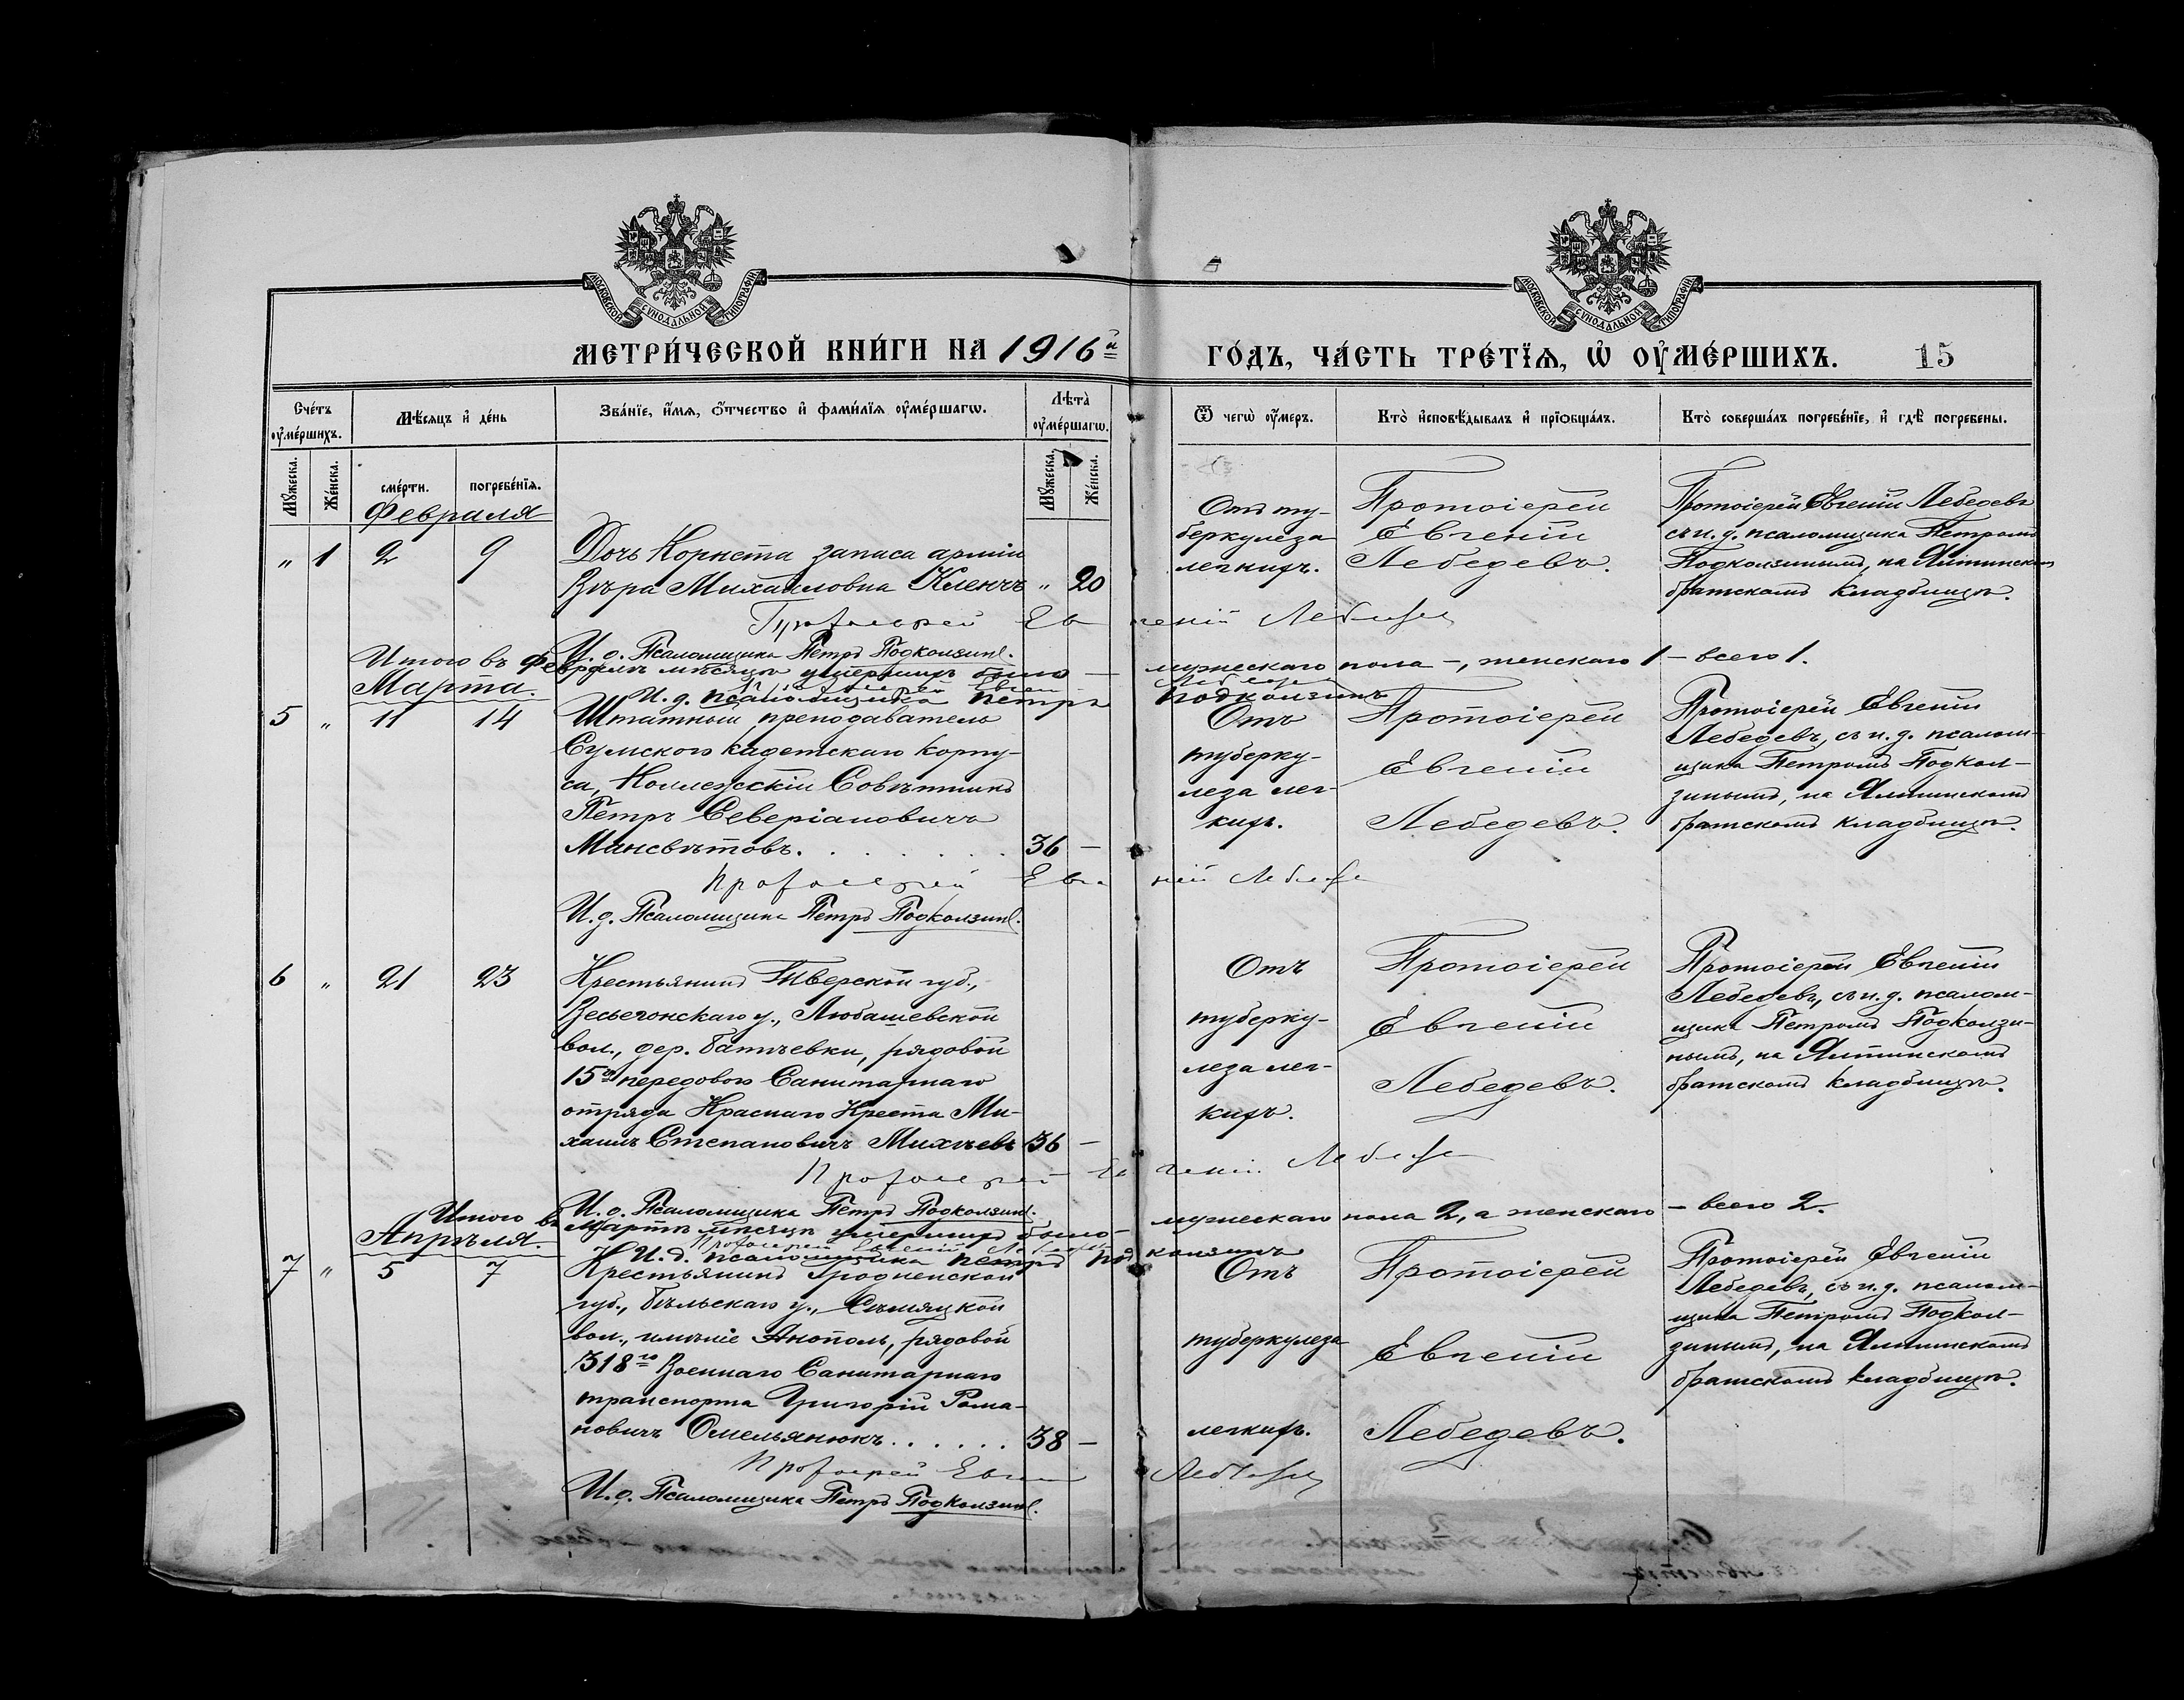 МОСКОВСКОЙ СУНОДАЛЬНОЙ ТИПОГРАФІИ
МОСКОВСКОЙ СУНОДАЛЬНОЙ ТИПОГРАФІИ
МЕТРИ́ЧЕСКОЙ КНИ́ГИ НА 1916й
ГО́ДЪ, ЧА́СТЬ ТРЕ́ТЇѦ, Ѡ҆ ОУ҆МЕ́РШИХЪ.
15
Сче́тъ оу҆ме́ршихъ.
Мѣ́сѧцъ и҆ де́нь
Зва́нїе, и҆́мѧ, ѻ҆́тчество и҆ фами́лїѧ оу҆ме́ршагѡ.
Лѣ́та оу҆ме́ршагѡ.
Ѿ чегѡ̀ оу҆́меръ.
Кто̀ и҆сповѣ́дывалъ и҆ прїѻбща́лъ.
Кто̀ соверша́лъ погребе́нїе, и҆ гдѣ̀ погребены.
Мꙋ́жеска.
Же́нска.
сме́рти.
погребе́нїѧ.
Мꙋ́жеска.
Же́нска.
Февраля
„ 1 2 9
Дочь Корнета запаса арміи
Вѣра Михаиловна Кленчъ „ 20
Отъ ту-
беркулеза
легкихъ.
Протоіерей
Евгеній
Лебедевъ.
Протоіерей Евгеній Лебедевъ
съ и. д. псаломщика Петромъ
Подколзинымъ, на Ялтинскомъ
братскомъ кладбищѣ.
Протоіерей Евгеній Лебедев
И. о. Псаломщика Петръ Подколзинъ.
Итого въ Февралѣ мѣсяцѣ умершихъ было — мужескаго пола –, женскаго 1 – всего 1.
Протоіерей Евгеній Лебедев
И. д. псаломщика Петръ Подколзинъ
Марта.
5 „ 11 14
Штатный преподаватель
Сумского кадетскаго корпу-
са, Коллежскій Совѣтникъ
Петръ Северіановичъ
Мансвѣтовъ. 36 —
Отъ
туберку-
леза лег-
кихъ.
Протоіерей
Евгеній
Лебедевъ.
Протоіерей Евгеній
Лебедевъ, съ и. д. псалом-
щика Петромъ Подкол-
зинымъ, на Ялтинскомъ
братскомъ кладбищѣ.
Протоіерей Евгеній Лебедев
И. д. Псаломщика Петръ Подколзинъ.
6 „ 21 23
Крестьянинъ Тверской губ.,
Весьегонскаго у., Любашевской
вол., дер. Батѣевки, рядовой
15го передового Санитарнаго
отряда Краснаго Креста Ми-
хаилъ Степановичъ Михѣевъ 36 —
Отъ
туберку-
леза лег-
кихъ.
Протоіерей
Евгеній
Лебедевъ.
Протоіерей Евгеній
Лебедевъ, съ и. д. псалом-
щика Петромъ Подколзи-
нымъ, на Ялтинскомъ
братскомъ кладбищѣ.
Протоіерей Евгеній Лебедев
И. о. Псаломщика Петръ Подколзинъ.
Итого въ Мартѣ мѣсяцѣ умершихъ было — мужескаго пола 2, а женскаго – всего 2.
Протоіерей Евгеній Лебедев
И. д. псаломщика Петръ Подколзинъ
Апрѣля.
7 „ 5 7
Крестьянинъ Гродненской
губ., Бѣльскаго у., Сѣмяцкой
вол., имѣніе Анополь, рядовой
318го Военнаго Санитарнаго
транспорта Григорій Рома-
новичъ Омельянюкъ...... 38 —
Отъ
туберкулеза
легкихъ.
Протоіерей
Евгеній
Лебедевъ.
Протоіерей Евгеній
Лебедевъ, съ и. д. псалом-
щика Петромъ Подкол-
зинымъ, на Ялтинскомъ
братскомъ кладбищѣ.
Протоіерей Евгеній Лебедев
И. д. Псаломщика Петръ Подколзинъ.